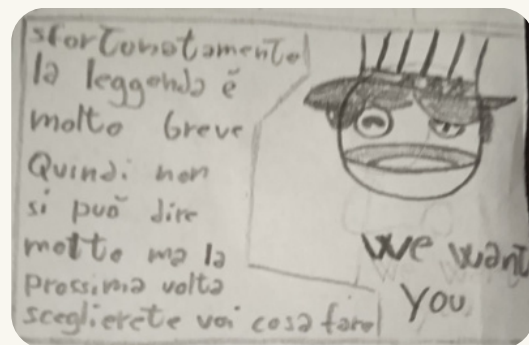 sfortunatamente
la leggenda è
molto breve
Quindi non
si può dire
molto ma la
prossima volta
sceglierete voi cosa farò
we want
you